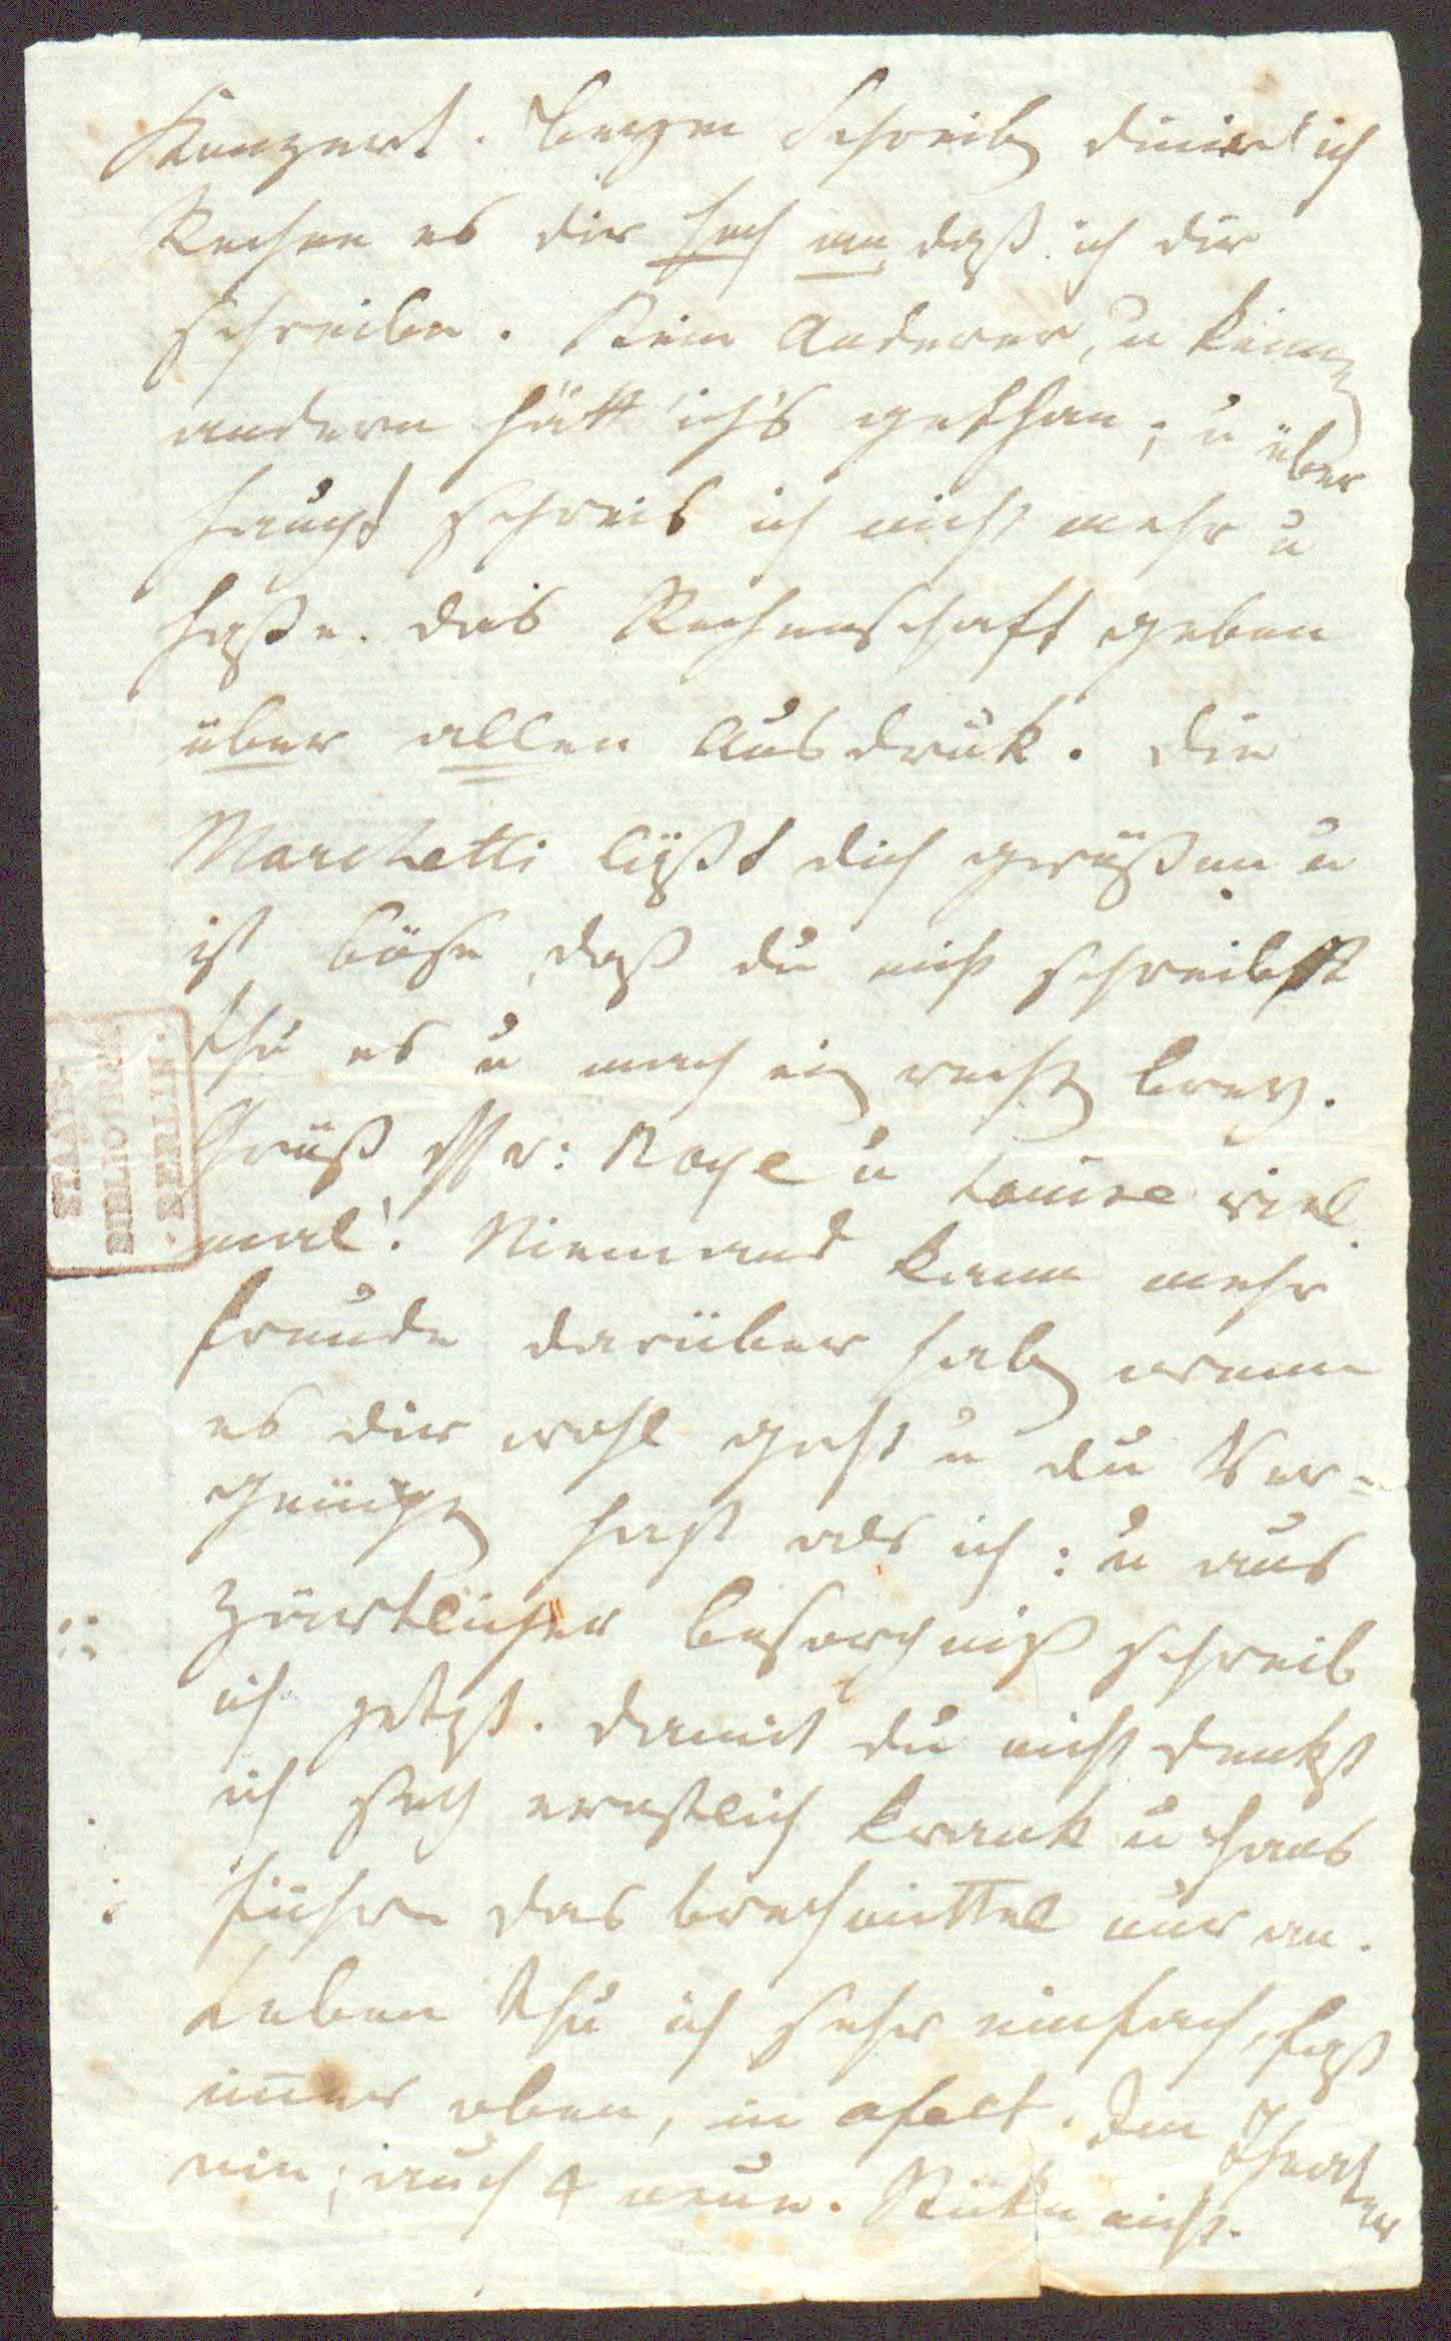 Konzert. Beym Schreiben dinirt ich
Rechne es dir hoch an, daß ich dir
schreibe. Kein Anderer, u keinem
andern hätt' ich's gethan; u über
haupt schreib ich nicht mehr u
haße das Rechenschaft geben
über allen Ausdruk. Die
Marchetti läßt dich grüßen u
ist böse daß du nicht schreibst
thu es u mach ein rechten Brey.
Grüß Mr: u Louise viel
mal! Niemand kann mehr
Freude darüber haben wenn
es dir wohl geht u du Ver-
gnügen hast als ich: u aus
zärtlicher Besorgniß schreib
ich jetzt. Damit du nicht denkst
ich sey ernstlich krank u Hans
führe das Brechmittel nur an.
Leben thu ich sehr einfach, fast
immer oben, in. Im Theater
nie; auch 4 neue Stüke nicht.
STAATS-
BIBLIOTHEK
· BERLIN ·